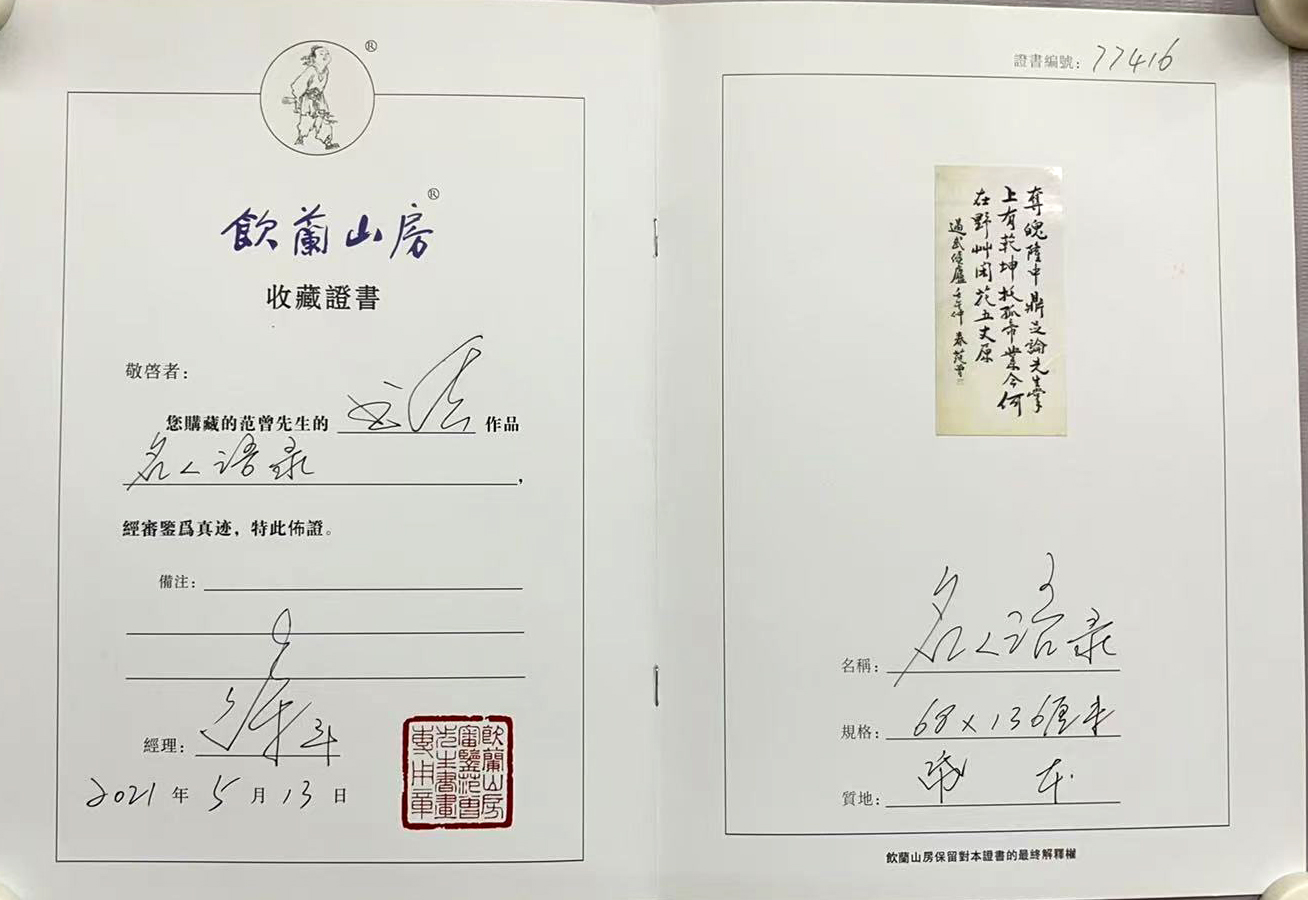 飲蘭山房
收藏證書
敬啓者：
您購藏的范曾先生的 书法 作品
名人语录，
經審鑒爲真迹，特此佈證。
備注：
經理：
2021 年 5 月 13 日
飲蘭山房
審鑒范曾
先生書畫
專用章
證書編號：77416
奪魄隆中鼎足論先生掌
上有乾坤托孤帝業今何
在野艸闲花五丈原
過武侯廬壬午仲春范曾
名稱：名人语录
規格：68×136厘米
質地：纸本
飲蘭山房保留對本證書的最終解釋權